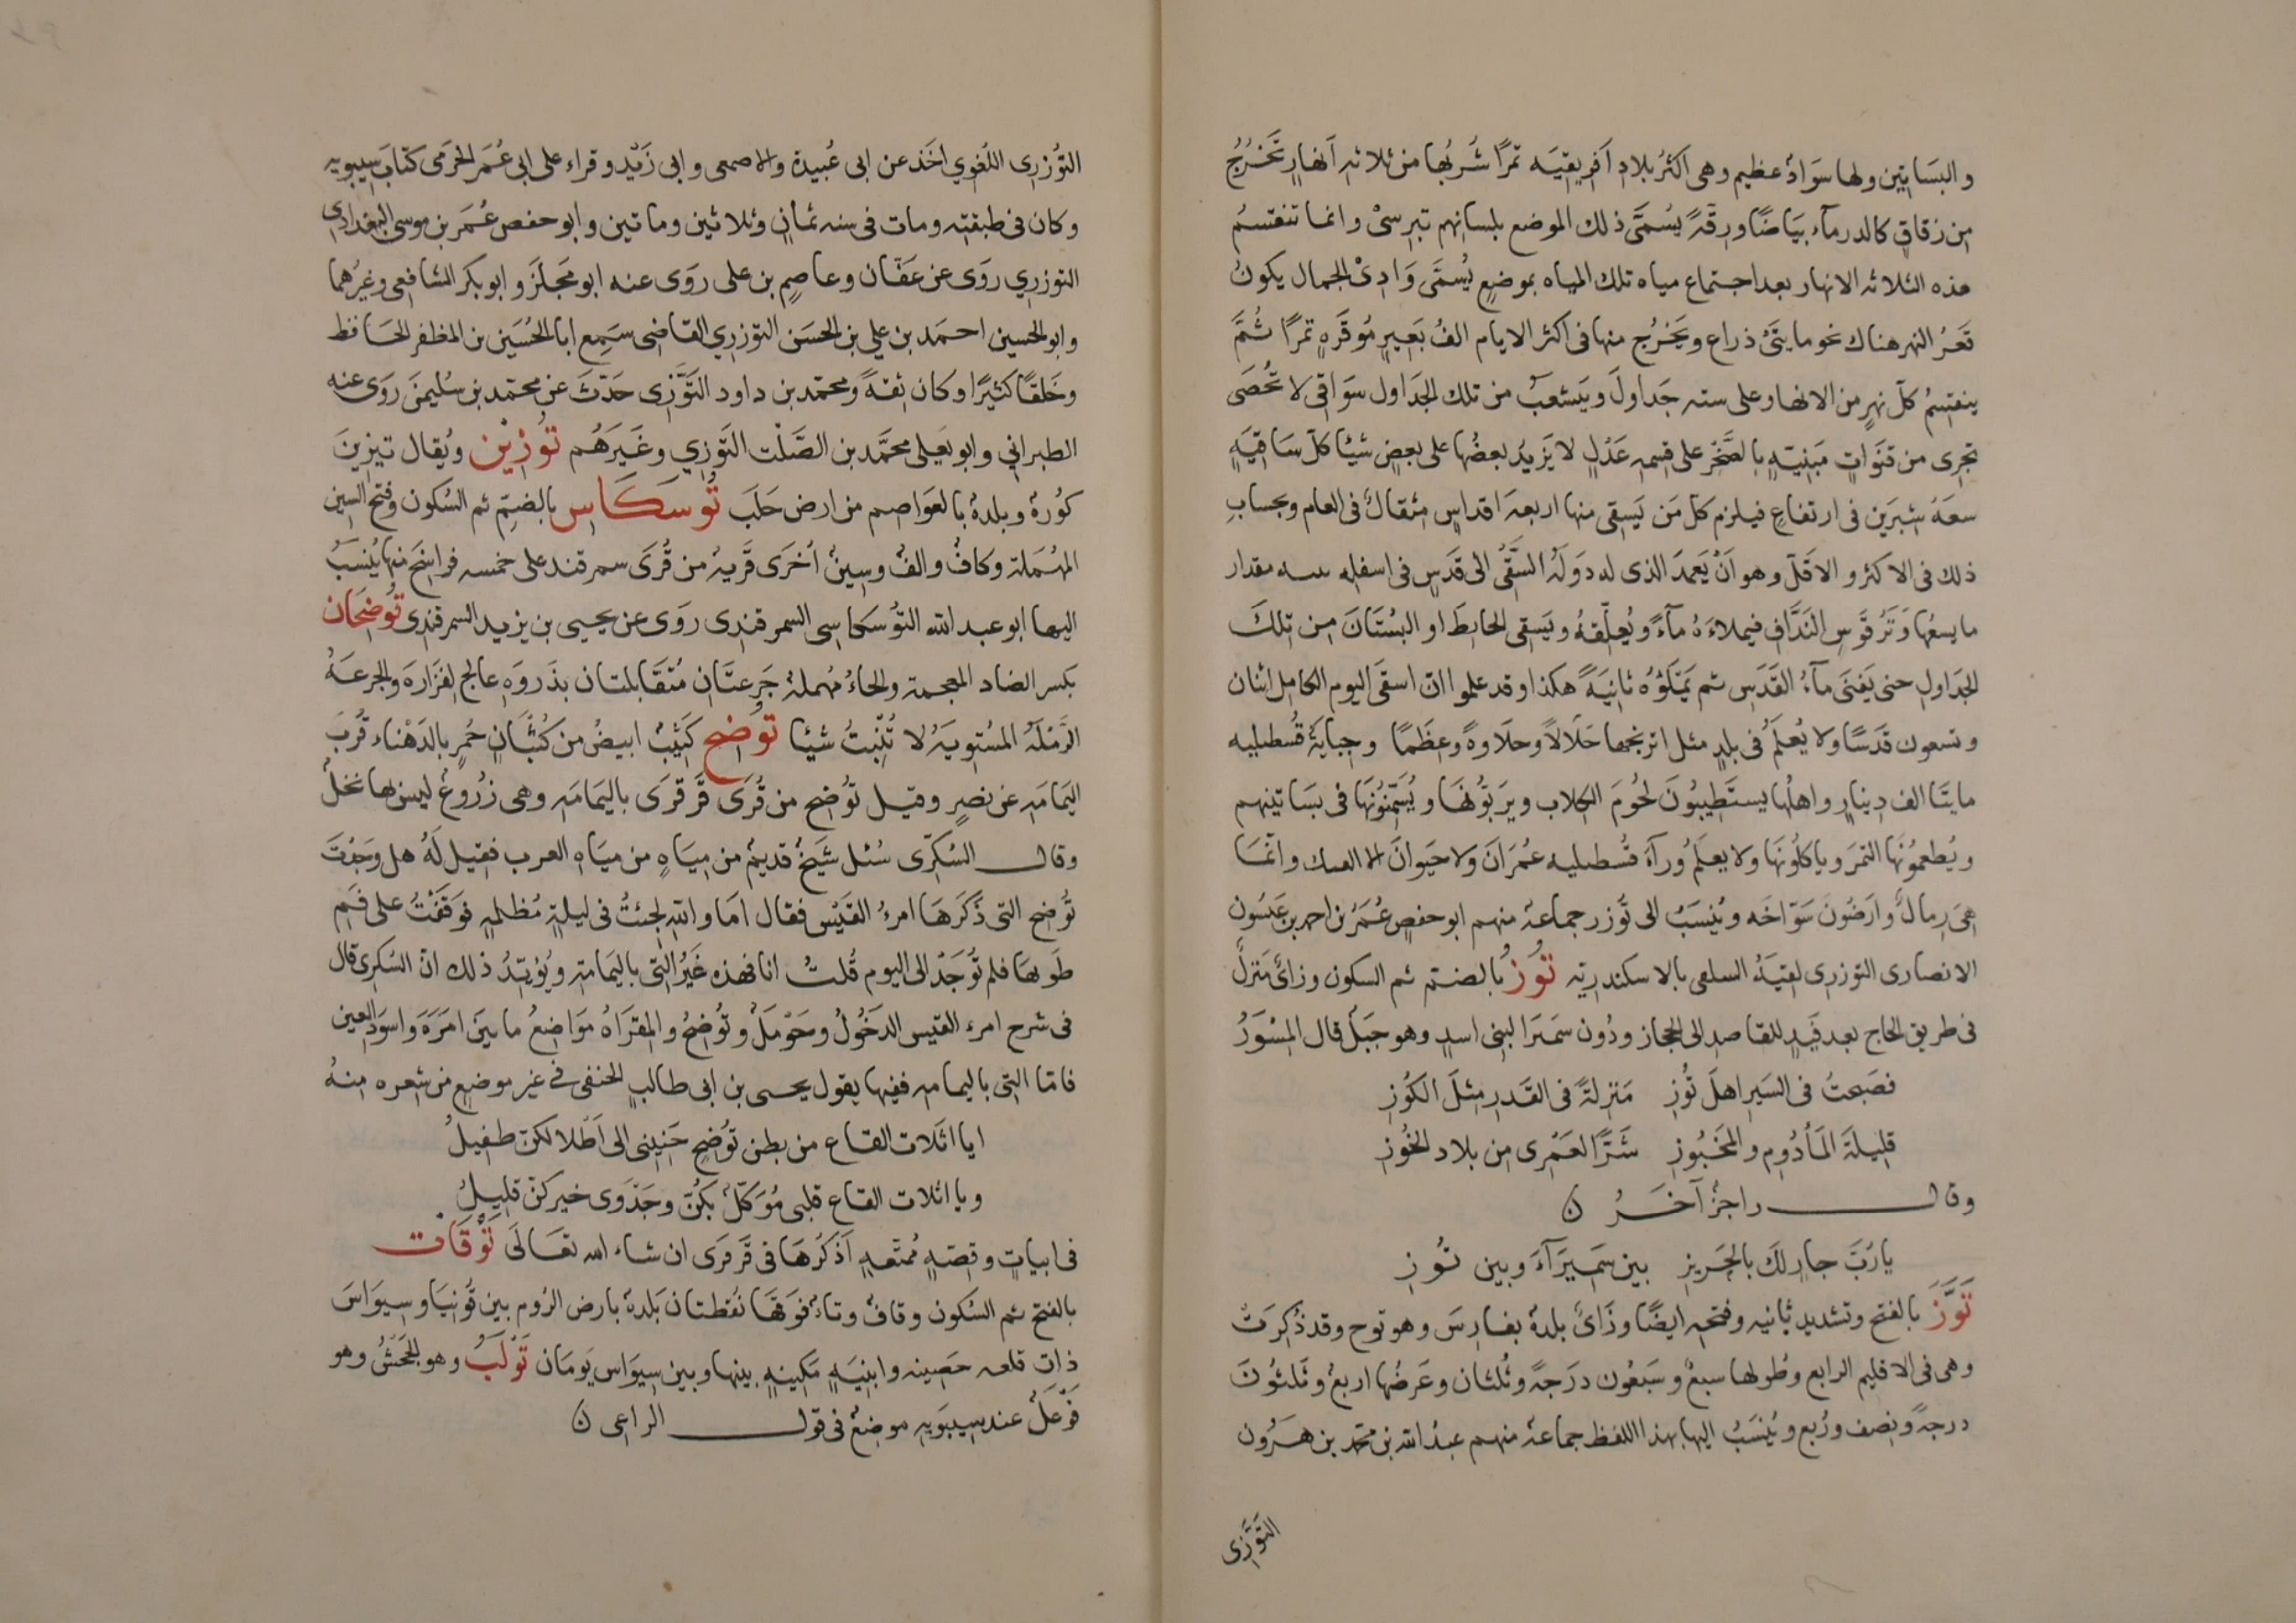 والبسَاتين ولها سوَادٌ عظيم وهى اكثرُ بلادِ اَفريقيَه تمرًا شُربُها من ثلاثهِ اَنهارٍ تَخرُجُ
من زقاقٍ كالدرمآء بيَاضًا ورِقّهً يسُمَّى ذلك الموضع بلسانِهم تبرسىْ وانما تنقتسمُ
هذه الثلاثه الانهار بعد اجتماع مياه تلك المياه بموضعٍ يُسمَّى وَادِىْ الجمال يكونُ
قَعرُ النهر هناك نحو مايتَىْ ذراع ويَخرُج منها فى اكثر الايام الفُ بَعيرٍ مُوقَرهٍ تمرًا ثُمَّ
ينقتسِمُ كلّ نهرٍ من الانهار على سته جَداولَ ويَتشعبُ من تلك الجَداول سَوَاقى لا تُحصَى
تجرِى من قنَواتٍ مَبنيّهٍ بالصَّخرِ على قسِمهِ عَدْلٍ لا يَزيدُ بعضُها على بعضٍ شيئًا كلّ سَاقيَهٍ
سعَهُ شِبرَين فى ارتفاعِ فيلزم كلّ مَن يَسقِى منها اربعهَ اقداسٍ مثقالٌ فى العام وبحسابِ
ذلك فى الاكثر والاقلّ وهو اَنْ يَعمدَ الذى له دَولَهُ السَّقْىِ الى قَدَسٍ فى اسفله سـه مقدار
ما يسعُها وَتَرُ قَوسِ النَدَّافِ فيملاءهُ مآءً ويُعلّقهُ ويَسقِى الحايِطَ او البُستَانَ من تلكَ
الجَداولِ حتى يَفنَى مآءُ القَدَسِ ثم يَمْلَؤُه ثانيَهً هكذا وقد علموا انّ سقَى اليوم الكامل اثنان
وتسعون قَدَسًا ولا يُعلَمُ فى بلدٍ مثل اترنجها حَلَالاً وحلاوهً وعِظَمًا وجِبايَةُ قُسطيليه
مايتَا الف دينارٍ واهلُها يستَطِيبُونَ لحُومَ الكلاب ويرَبّوُنهَا ويُسَمّنُونَها فى بسَاتينهم
ويُطعمُونَها التمرَ وياكلُونَها ولا يعلَمُ ورآءَ قسُطيليه عمُرَانَ ولا حيَوانَ الا الفنك وانّمَا
هىَ رِمالٌ وارَضُونَ سَوّاخَه وينُسَبُ الى توُزر جماعهٌ منهم ابو حفصٍ عُمرَ بن احمد بن عَيسُون
الانصارى التوزرى لقيَهُ السلفى بالاسكندريّه توُز بالضتم ثم السكون وزائٌ مَنزلٌ
فى طريق الحاج بعد فَيدٍ للقاصدِ الى الحجاز ودُون سَميَرا لبنى اسدٍ وهو جبَلٌ قال المِسْوَرُ
فصَبحتُ فى السَيرِ اهلَ توُزِ مَنزِلةً فى القَدرِ مِثلَ الكوُزِ
قليلَةَ المَأدُومِ والمَخبُوزِ شَرًّا لعَمْرِى من بلاد الخُوزِ
وقالــ راجزٌ آخرُ ن
يارُبَّ جارِ لكَ بالحَرِيزِ بين سَمِيَرآءَ وبين توُزِ
تَوَّزَ بالفتح وتشديد ثانيه وفتحه ايضًا وزَائٌ بلدهٌ بفارِسَ وهو توج وقد ذُكِرَتْ
وهى فى الاقليم الرابع وطُولها سبعٌ وسَبعُون درَجهً وثُلثان وعَرضُها اربعٌ وثَلثُونَ
درجهً ونِصف ورُبع وينُسَبُ اليها بهذا اللفظ جماعهٌ منهم عبدُ الله بن محمد بن هرُون
التَوَّزِى
التوُزرِى اللُغوِي اخَذ عن ابى عُبيدة والاصمعى وابى زَيْد وقراء على ابى عُمَرَ الجَرمى كتابَ سيبويه
وكان فى طبقته ومات فى سنه ثمانٍ وثلاثين وماتين وابو حفص عُمَر بن موسى البغدادى
التوزرِي روَى عن عَفّان وعاصِم بن على روَى عنه ابو مَجلَز وابو بكر الشافعى وغيرُهما
وابو الحسين احمَد بن علي بن الحسَن التوزرِي القاضى سَمِع ابا الحُسَين بن المظفر الحَافظ
وخَلقًا كثيًرا وكان ثقهً ومحمّد بن داود التَوَّزِى حَدّثَ عن محمّد بن سُليمنَ روَى عنه
الطبراني وابو يعَلى محمَّد بن الصَّلْت التَوَّزِي وغَيَرهُم توُزِيْن ويُقال تيزينَ
كوُرهٌ وبلدهٌ بالعَواصم من ارض حَلَبَ توُسكَاس بالضمِّ ثم السُكون وفتح السين
المهُمَلة وكافٌ والفٌ وسينٌ اُخرَى قَريهٌ من قُرَى سمرقند على خمسه فراسِخَ منها يُنسَبُ
اليها ابو عبد الله التوُسكاسى السمرقندِى روَى عن يحيى بن يزيد السمرقندِى توُضِحَان
بكسر الضاد المعجمة والحاءُ مهُملهٌ جَرعتَانِ متُقَابلتان بذَروَهِ عالج لفَزارهَ والجرعَهُ
الرَّملَهُ المسُتويَهُ لا تُنْبِتُ شيئا توُضح كَثيْبٌ ابيضُ من كُثبَانٍ حُمرٍ بالدَهْناء قُربَ
اليَمامَهِ عن نصرٍ وقيل توُضح من قُرَى قَرقرَى باليَمامَهِ وهى زُروُعٌ ليس لها نخلٌ
وقالــ السُكرّى سُئل شَيخٌ قديمٌ من مِيَاهٍ من ميَاهِ العرب فقيل لَهُ هل وَجَدْتَ
توُضح التى ذَكَرَهَا امرءُ القَيْس فقال امَا واللهِ لجئتُ فى ليلةٍ مُظلمهٍ فوَقَفْتُ على فَمِ
طَويّها فلم توُجَدْ الى اليوم قُلتُ انا فهذه غَيُر التِى باليَمامَهِ ويُؤيّدُ ذلك انّ السُكرِىَ قال
فى شرح امرء القيس الدَخُولُ وحَوْملٌ وتوُضحُ والمقراهُ موَاضعُ ما بينَ امرَهَ واسوَد العين
فامّا التِى باليمامه ففيها يقول يحيى بن ابى طالبٍ الحنفى فى غير موضعٍ من شعره مِنهُ
ايا اثَلات القاع من بطن توُضِحٍ حَنِينِى الى اَطلالكنّ طَفِيلُ
ويا اثلات القاع قلبى موُكّلٌ بكُنّ وجَدْوَى خيركنّ قليلُ
فى ابياتٍ وقِصّهٍ مُمتعهٍ اَذكرُهَا فى قَرقرَى ان شاء الله تعَالَى تَوْقَات
بالفتح ثم السُكون وقافٌ وتاءٌ فوَقَها نقُطتان بَلدهٌ بارض الرُوم بين قوُنيَا وسِيوَاسَ
ذات قلعه حَصِينه وابنيَهٍ مَكِينهٍ بينها وبين سِيوَاس يَومَان تَوْلَبُ وهو الجَحَشُ وهو
فَوْعَلٌ عند سِيبَويهِ موضعٌ فى قولــ الراعى ن